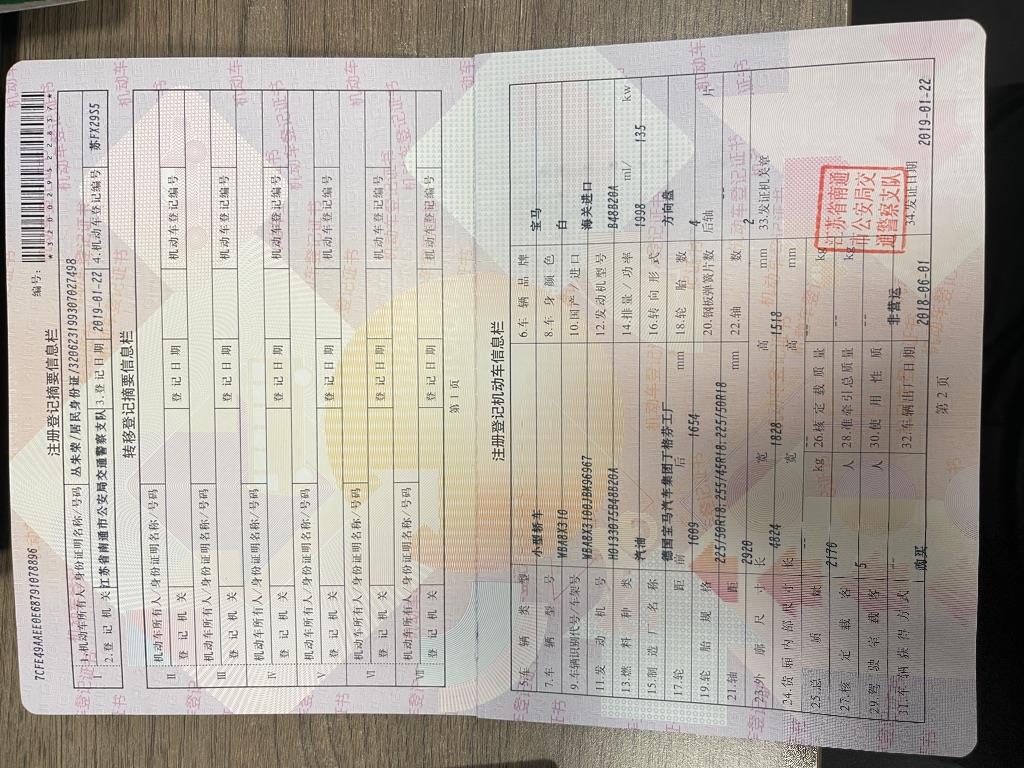 7CFE49AAEE0E68791078896
注册登记摘要信息栏
编号:
I
1.机动车所有人/身份证明名称/号码 丛朱荣/居民身份证/320623199307027498
2.登记机关 江苏省南通市公安局交通警察支队 3.登记日期 2019-01-22 4.机动车登记编号 苏FX29S5
转移登记摘要信息栏
II 机动车所有人/身份证明名称/号码
登记机关 登记日期 机动车登记编号
III 机动车所有人/身份证明名称/号码
登记机关 登记日期 机动车登记编号
IV 机动车所有人/身份证明名称/号码
登记机关 登记日期 机动车登记编号
V 机动车所有人/身份证明名称/号码
登记机关 登记日期 机动车登记编号
VI 机动车所有人/身份证明名称/号码
登记机关 登记日期 机动车登记编号
VII 机动车所有人/身份证明名称/号码
登记机关 登记日期 机动车登记编号
第 1 页
注册登记机动车信息栏
5.车辆类型 小型轿车 6.车辆品牌 宝马
7.车辆型号 WBA8X310 8.车身颜色 白
9.车辆识别代号/车架号 10.国产/进口 海关进口
11.发动机号 H0133075B48B20A 12.发动机型号 B48B20A
13.燃料种类 汽油 14.排量/功率 1998 ml/ 135 kw
15.制造厂名称 德国宝马汽车集团丁格芬工厂 16.转向形式 方向盘
17.轮距 前 1609 后 1654 mm 18.轮胎数 4
19.轮胎规格 225/50R18;255/45R18;225/50R18 20.钢板弹簧片数 后轴 -- 片
21.轴距 2920 mm 22.轴数 2
23.外廓尺寸 长 4824 宽 1828 高 1518 mm 33.发证机关章
24.货厢内部尺寸 长 -- 宽 -- 高 -- mm
25.总质量 2170 kg 26.核定载质量 -- kg
27.核定载客 5 人 28.准牵引总质量 -- kg
29.驾驶室载客 -- 人 30.使用性质 非营运
31.车辆获得方式 购买 32.车辆出厂日期 2018-06-01 34.发证日期 2019-01-22
江苏省南通
市公安局交
通警察支队
第 2 页